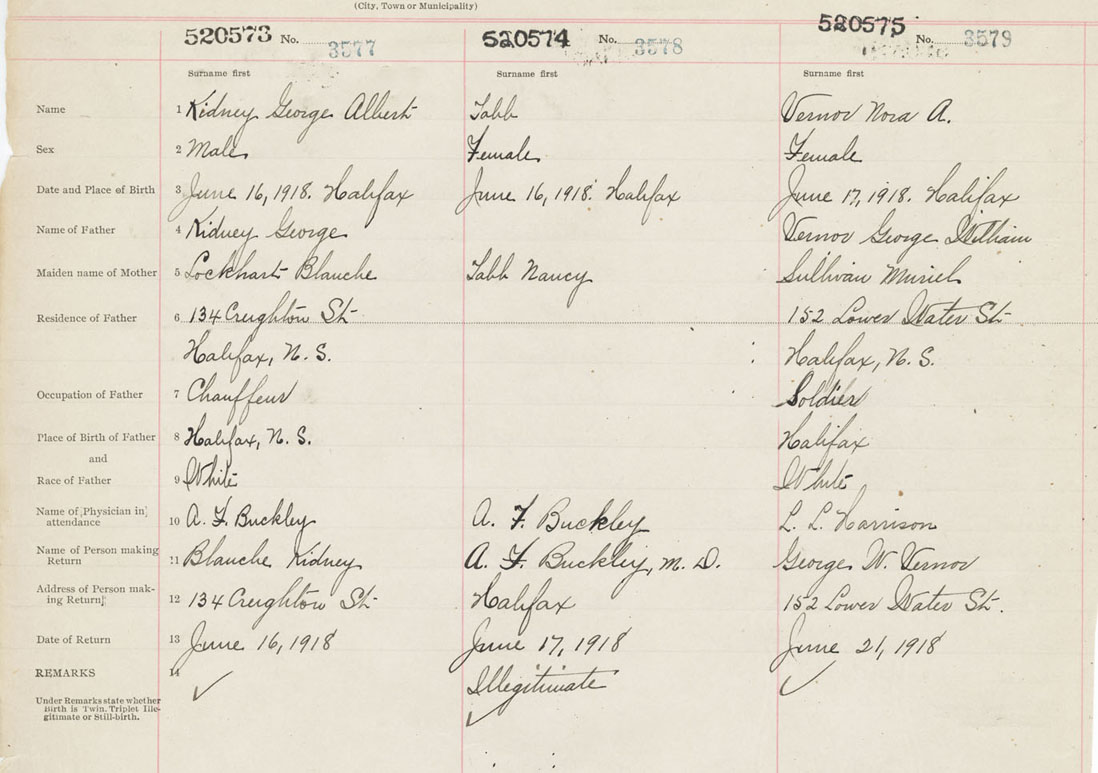 (City, Town or Municipality)
520573 No. 3577 520574 No. 3578 520575 No. 3579
Surname first Surname first Surname first
Name 1 Kidney George Albert Tabb Vernor Nora A.
Sex 2 Male Female Female
Date and Place of Birth 3 June 16, 1918. Halifax June 16, 1918. Halifax June 17, 1918. Halifax
Name of Father 4 Kidney George Vernor George William
Maiden name of Mother 5 Lockhart Blanche Tabb Nancy Sullivan Muriel
Residence of Father 6 134 Creighton St 152 Lower Water St
Halifax, N. S. Halifax, N. S.
Occupation of Father 7 Chauffeur Soldier
Place of Birth of Father 8 Halifax, N. S. Halifax
and
Race of Father 9 White White
Name of Physician in
attendance 10 A. F. Buckley A. F. Buckley L. L. Harrison
Name of Person making
Return 11 Blanche Kidney A. F. Buckley, M. D. George W. Vernor
Address of Person mak-
ing Return 12 134 Creighton St Halifax 152 Lower Water St.
Date of Return 13 June 16, 1918 June 17, 1918 June 21, 1918
REMARKS 14 Illegitimate
Under Remarks state whether
Birth is Twin, Triplet Ille-
gitimate or Still-birth.